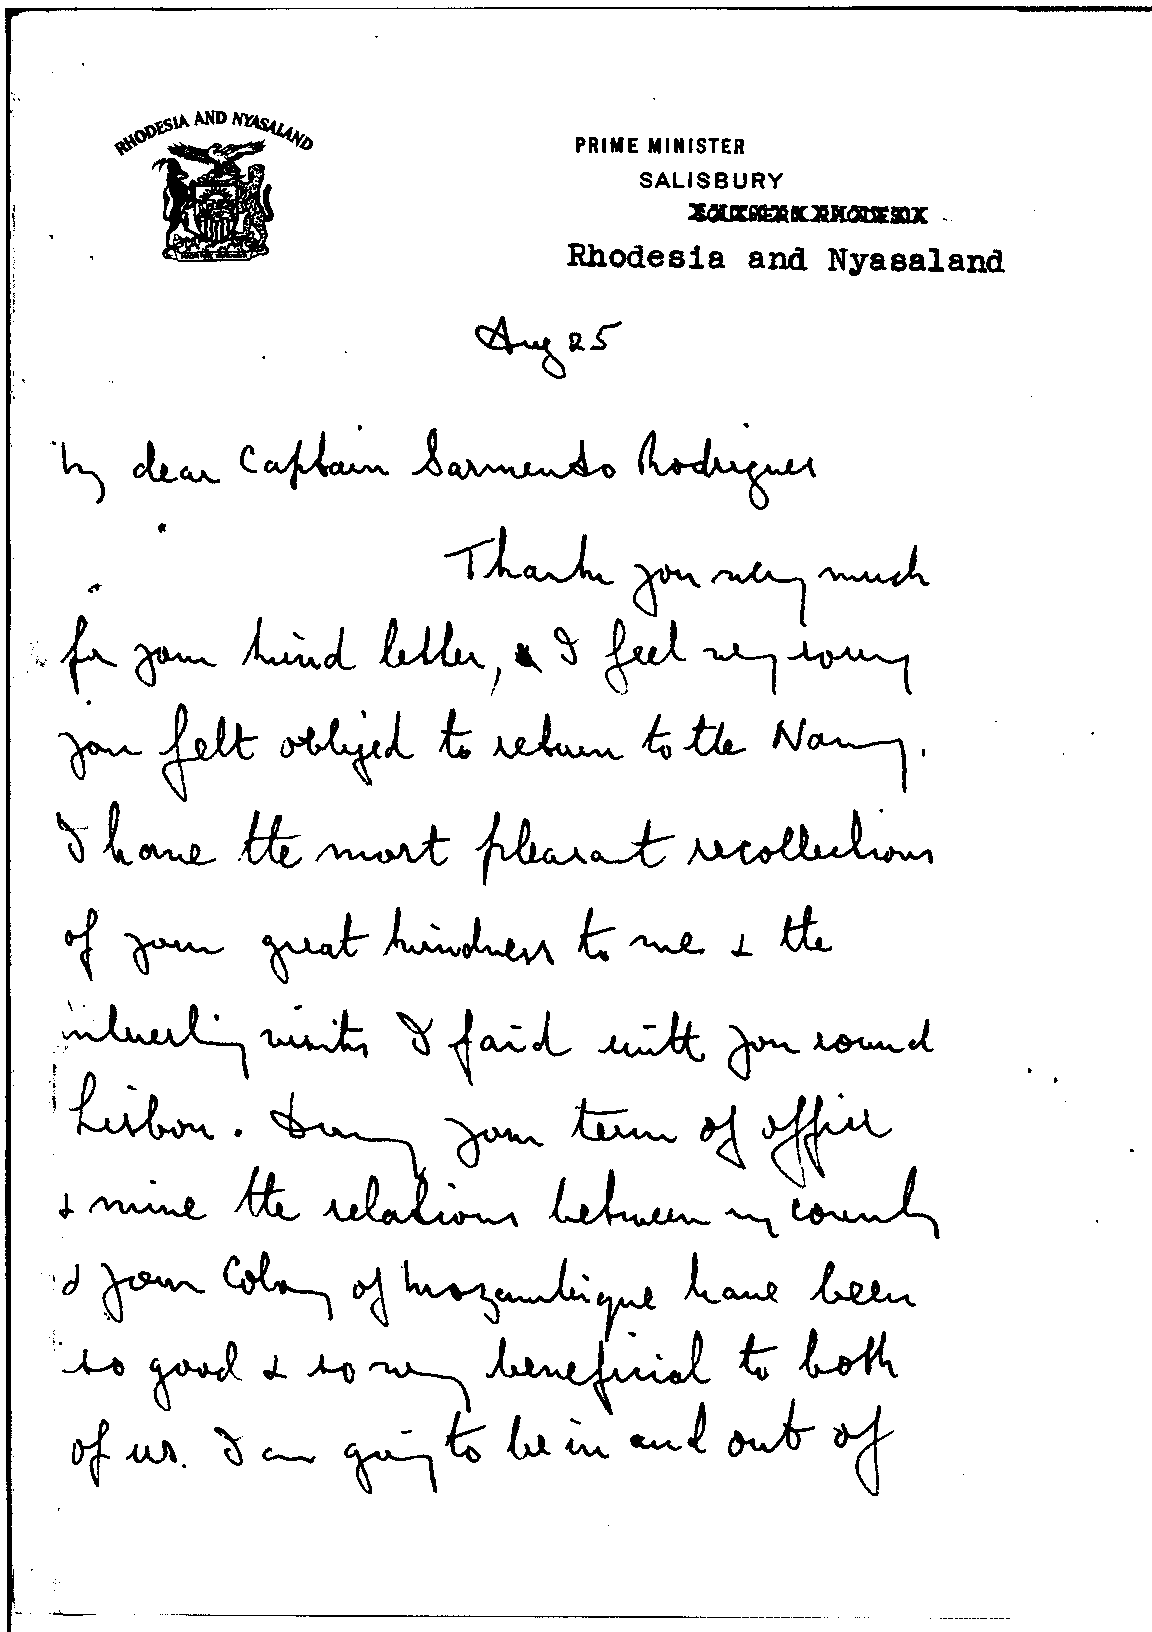 RHODESIA AND NYASALAND
PRIME MINISTER
SALISBURY
SOUTHERN RHODESIA
Rhodesia and Nyasaland
Aug 25
My dear Captain Sarmento Rodrigues
Thank you very much
for your kind letter, & I feel very sorry
you felt obliged to return to the Navy.
I have the most pleasant recollections
of your great kindness to me & the
interesting visits I paid with you round
Lisbon. During your term of office
& mine the relations between my country
& your Colony of Mozambique have been
so good & so very beneficial to both
of us. I am going to be in and out of